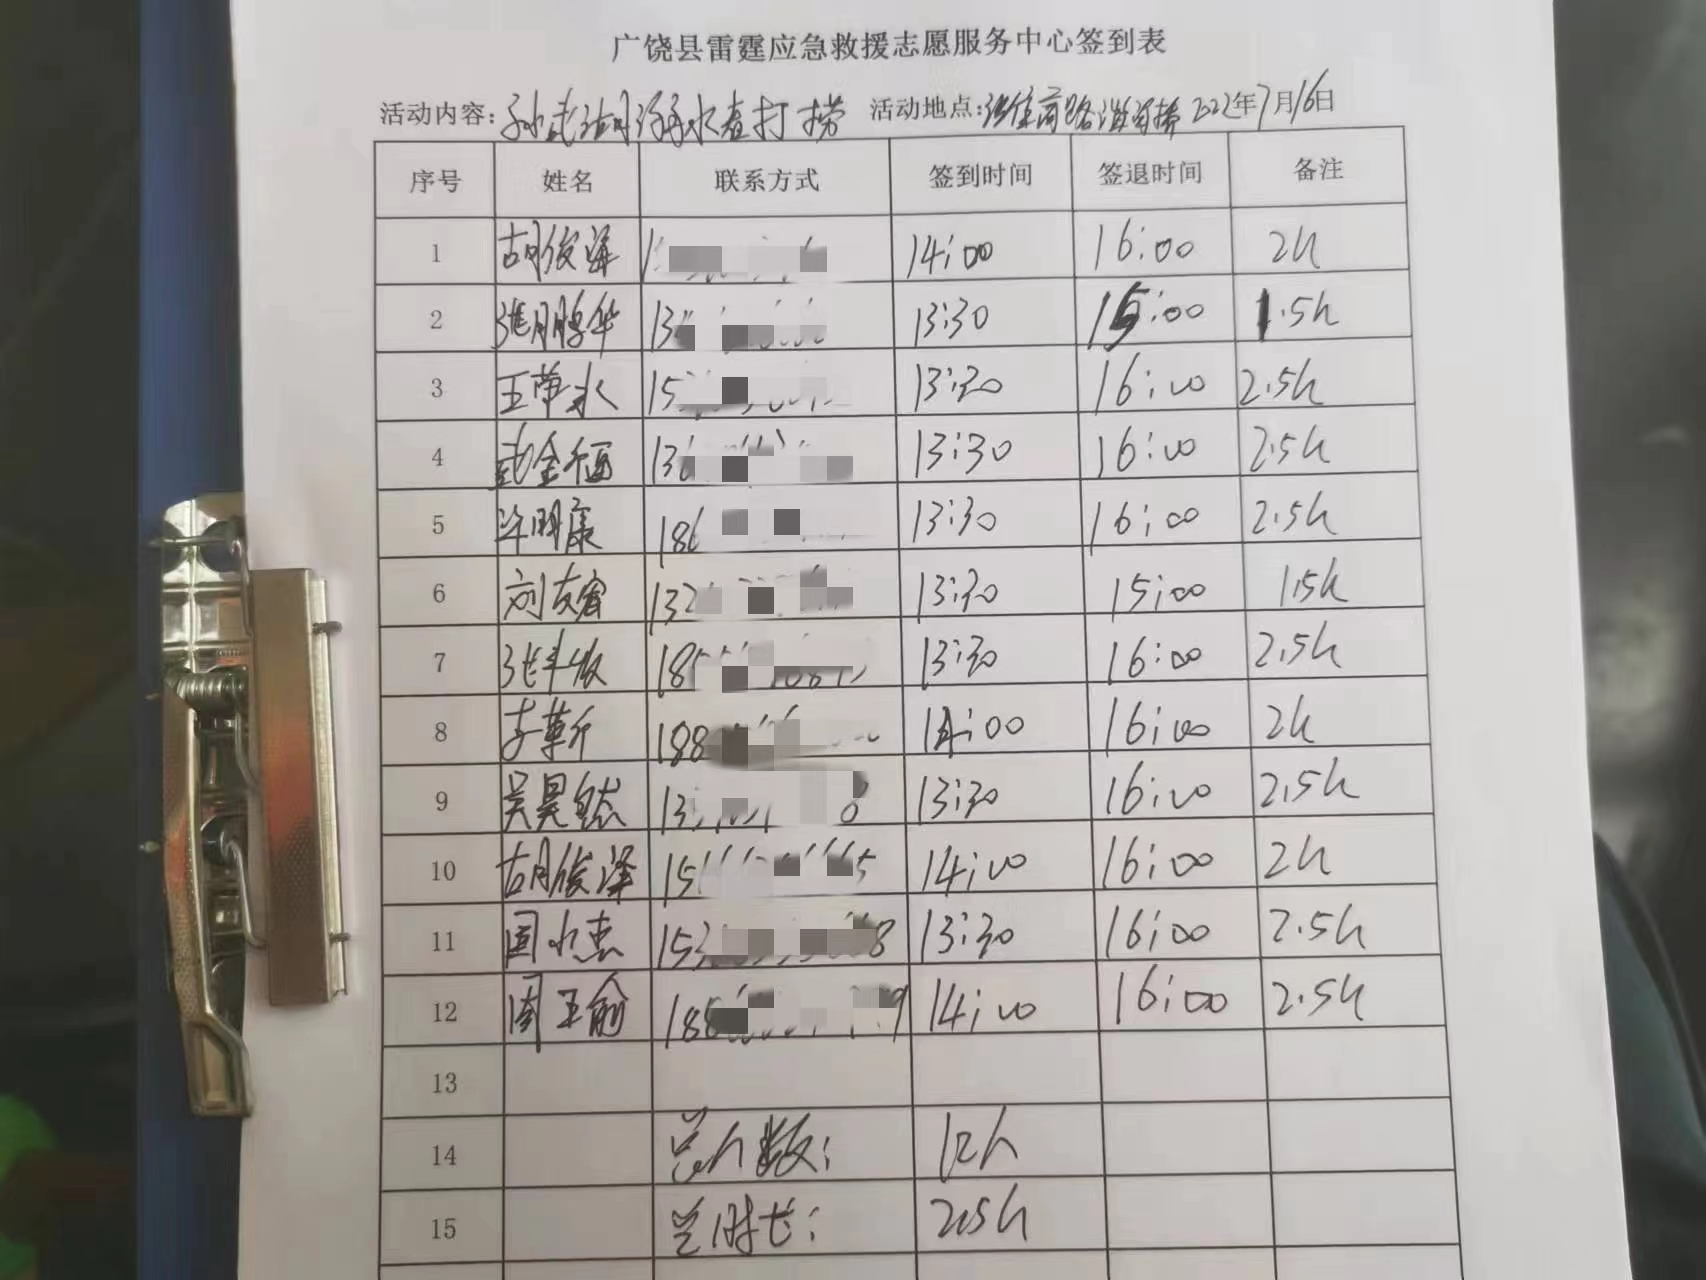 广饶县雷霆应急救援志愿服务中心签到表
活动内容：孙武湖溺水者打捞 活动地点： 2022年7月16日
序号 姓名 联系方式 签到时间 签退时间 备注
1 胡俊 14:00 16:00 2h
2 张鹏华 13 13:30 15:00 1.5h
3 王 水 15 13:30 16:00 2.5h
4 武金 13 13:30 16:00 2.5h
5 许明康 186 13:30 16:00 2.5h
6 刘友 132 13:30 15:00 1.5h
7 张 18 13:30 16:00 2.5h
8 李 188 14:00 16:00 2h
9 吴昊 13 8 13:30 16:00 2.5h
10 胡俊泽 15 5 14:00 16:00 2h
11 水 153 8 13:30 16:00 2.5h
12 周玉 188 9 14:00 16:00 2.5h
13
14 总人数: 12人
15 总时长: 2.5h